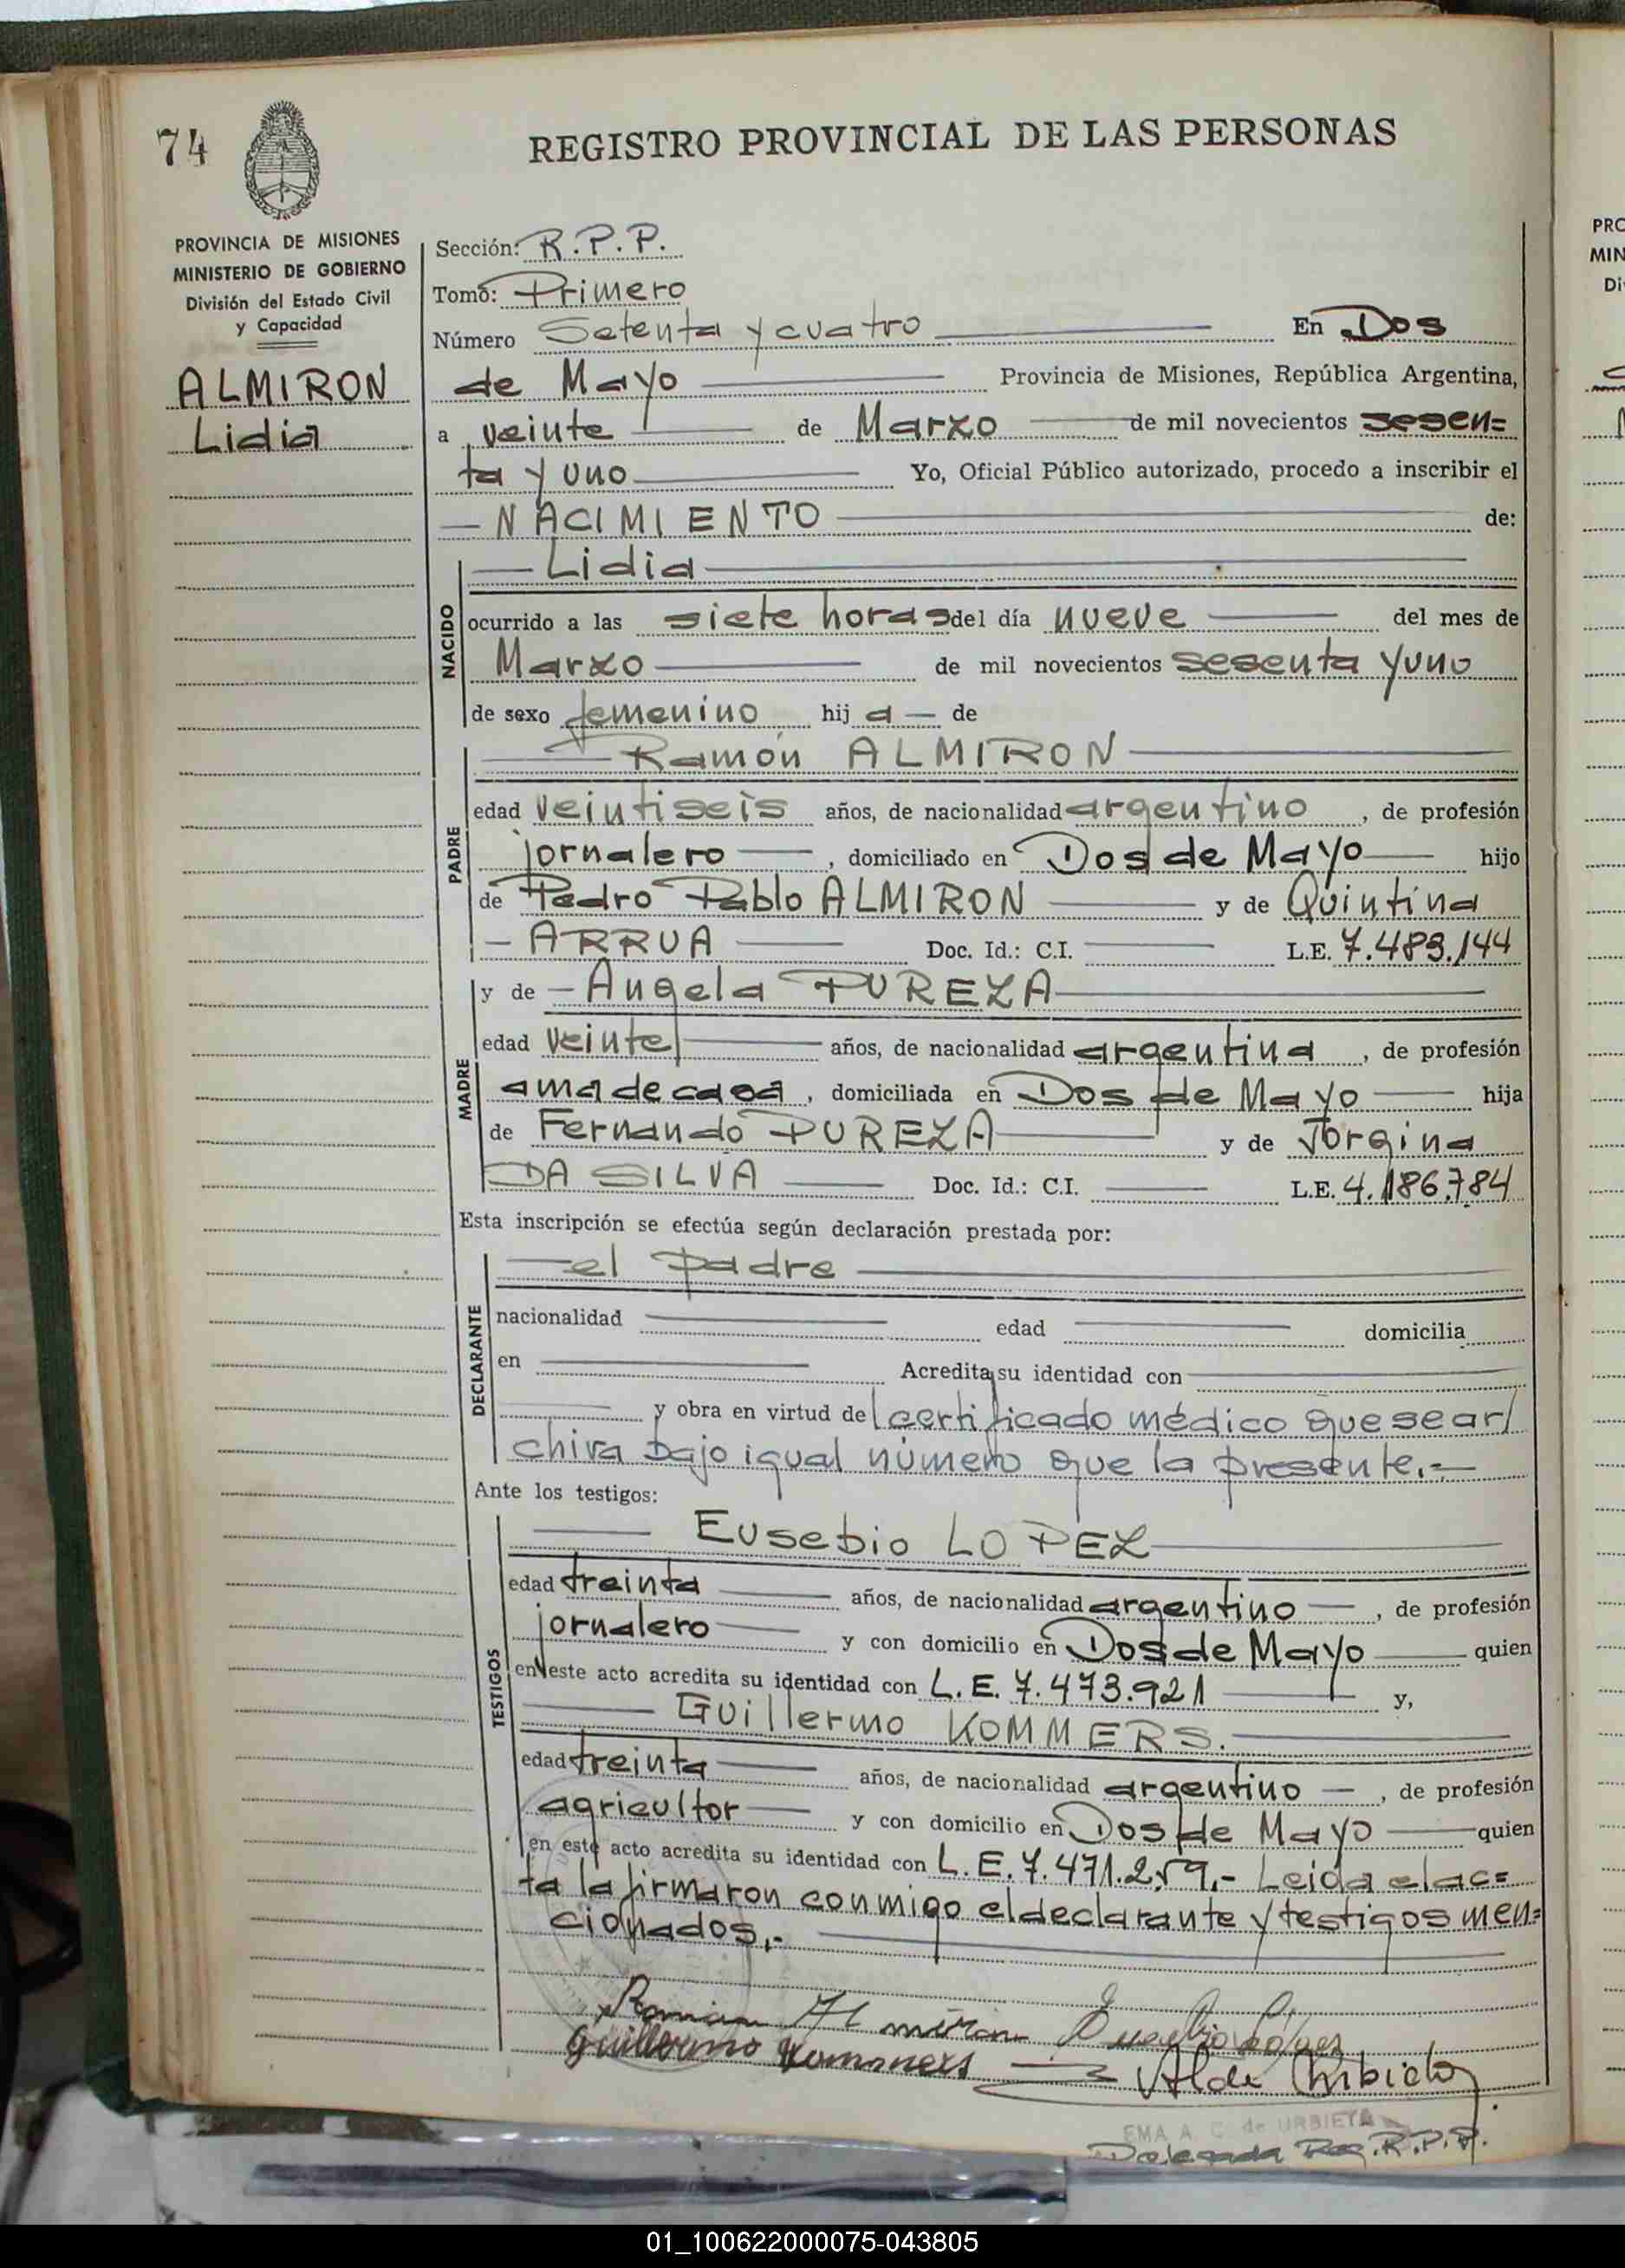 74
REGISTRO PROVINCIAL DE LAS PERSONAS
PROVINCIA DE MISIONES
MINISTERIO DE GOBIERNO
División del Estado Civil
y Capacidad
ALMIRON
Lidia
Sección: R.P.P.
Tomo: Primero
Número Setenta y cuatro En Dos
de Mayo Provincia de Misiones, República Argentina,
a veinte de Marzo de mil novecientos sesen=
ta y uno Yo, Oficial Público autorizado, procedo a inscribir el
NACIMIENTO de:
NACIDO
Lidia
ocurrido a las siete horas del día nueve del mes de
Marzo de mil novecientos sesenta y uno
de sexo femenino hij a de
PADRE
Ramón ALMIRON
edad veintiseis años, de nacionalidad argentino, de profesión
jornalero, domiciliado en Dos de Mayo hijo
de Pedro Pablo ALMIRON y de Quintina
ARRUA Doc. Id.: C.I. L.E. 7.483.144
MADRE
y de Angela PUREZA
edad veinte años, de nacionalidad argentina, de profesión
ama de casa, domiciliada en Dos de Mayo hija
de Fernando PUREZA y de Jorgina
DA SILVA Doc. Id.: C.I. L.E. 4.186.784
Esta inscripción se efectúa según declaración prestada por:
DECLARANTE
el padre
nacionalidad edad domicilia
en Acredita su identidad con
y obra en virtud del certificado médico que se ar/
chiva bajo igual número que la presente.-
Ante los testigos:
TESTIGOS
Eusebio LOPEZ
edad treinta años, de nacionalidad argentino, de profesión
jornalero y con domicilio en Dos de Mayo quien
en este acto acredita su identidad con L.E. 7.473.921 y,
Guillermo KOMMERS.
edad treinta años, de nacionalidad argentino, de profesión
agricultor y con domicilio en Dos de Mayo quien
en este acto acredita su identidad con L.E. 7.471.259.- Leida el ac=
ta la firmaron conmigo el declarante y testigos men=
cionados.-
Ramon Almiron
Guillermo Kommers
EMA A. C. de URBIETA
Delegada Reg. R.P.P.
PRO
MIN
Di
01_100622000075-043805